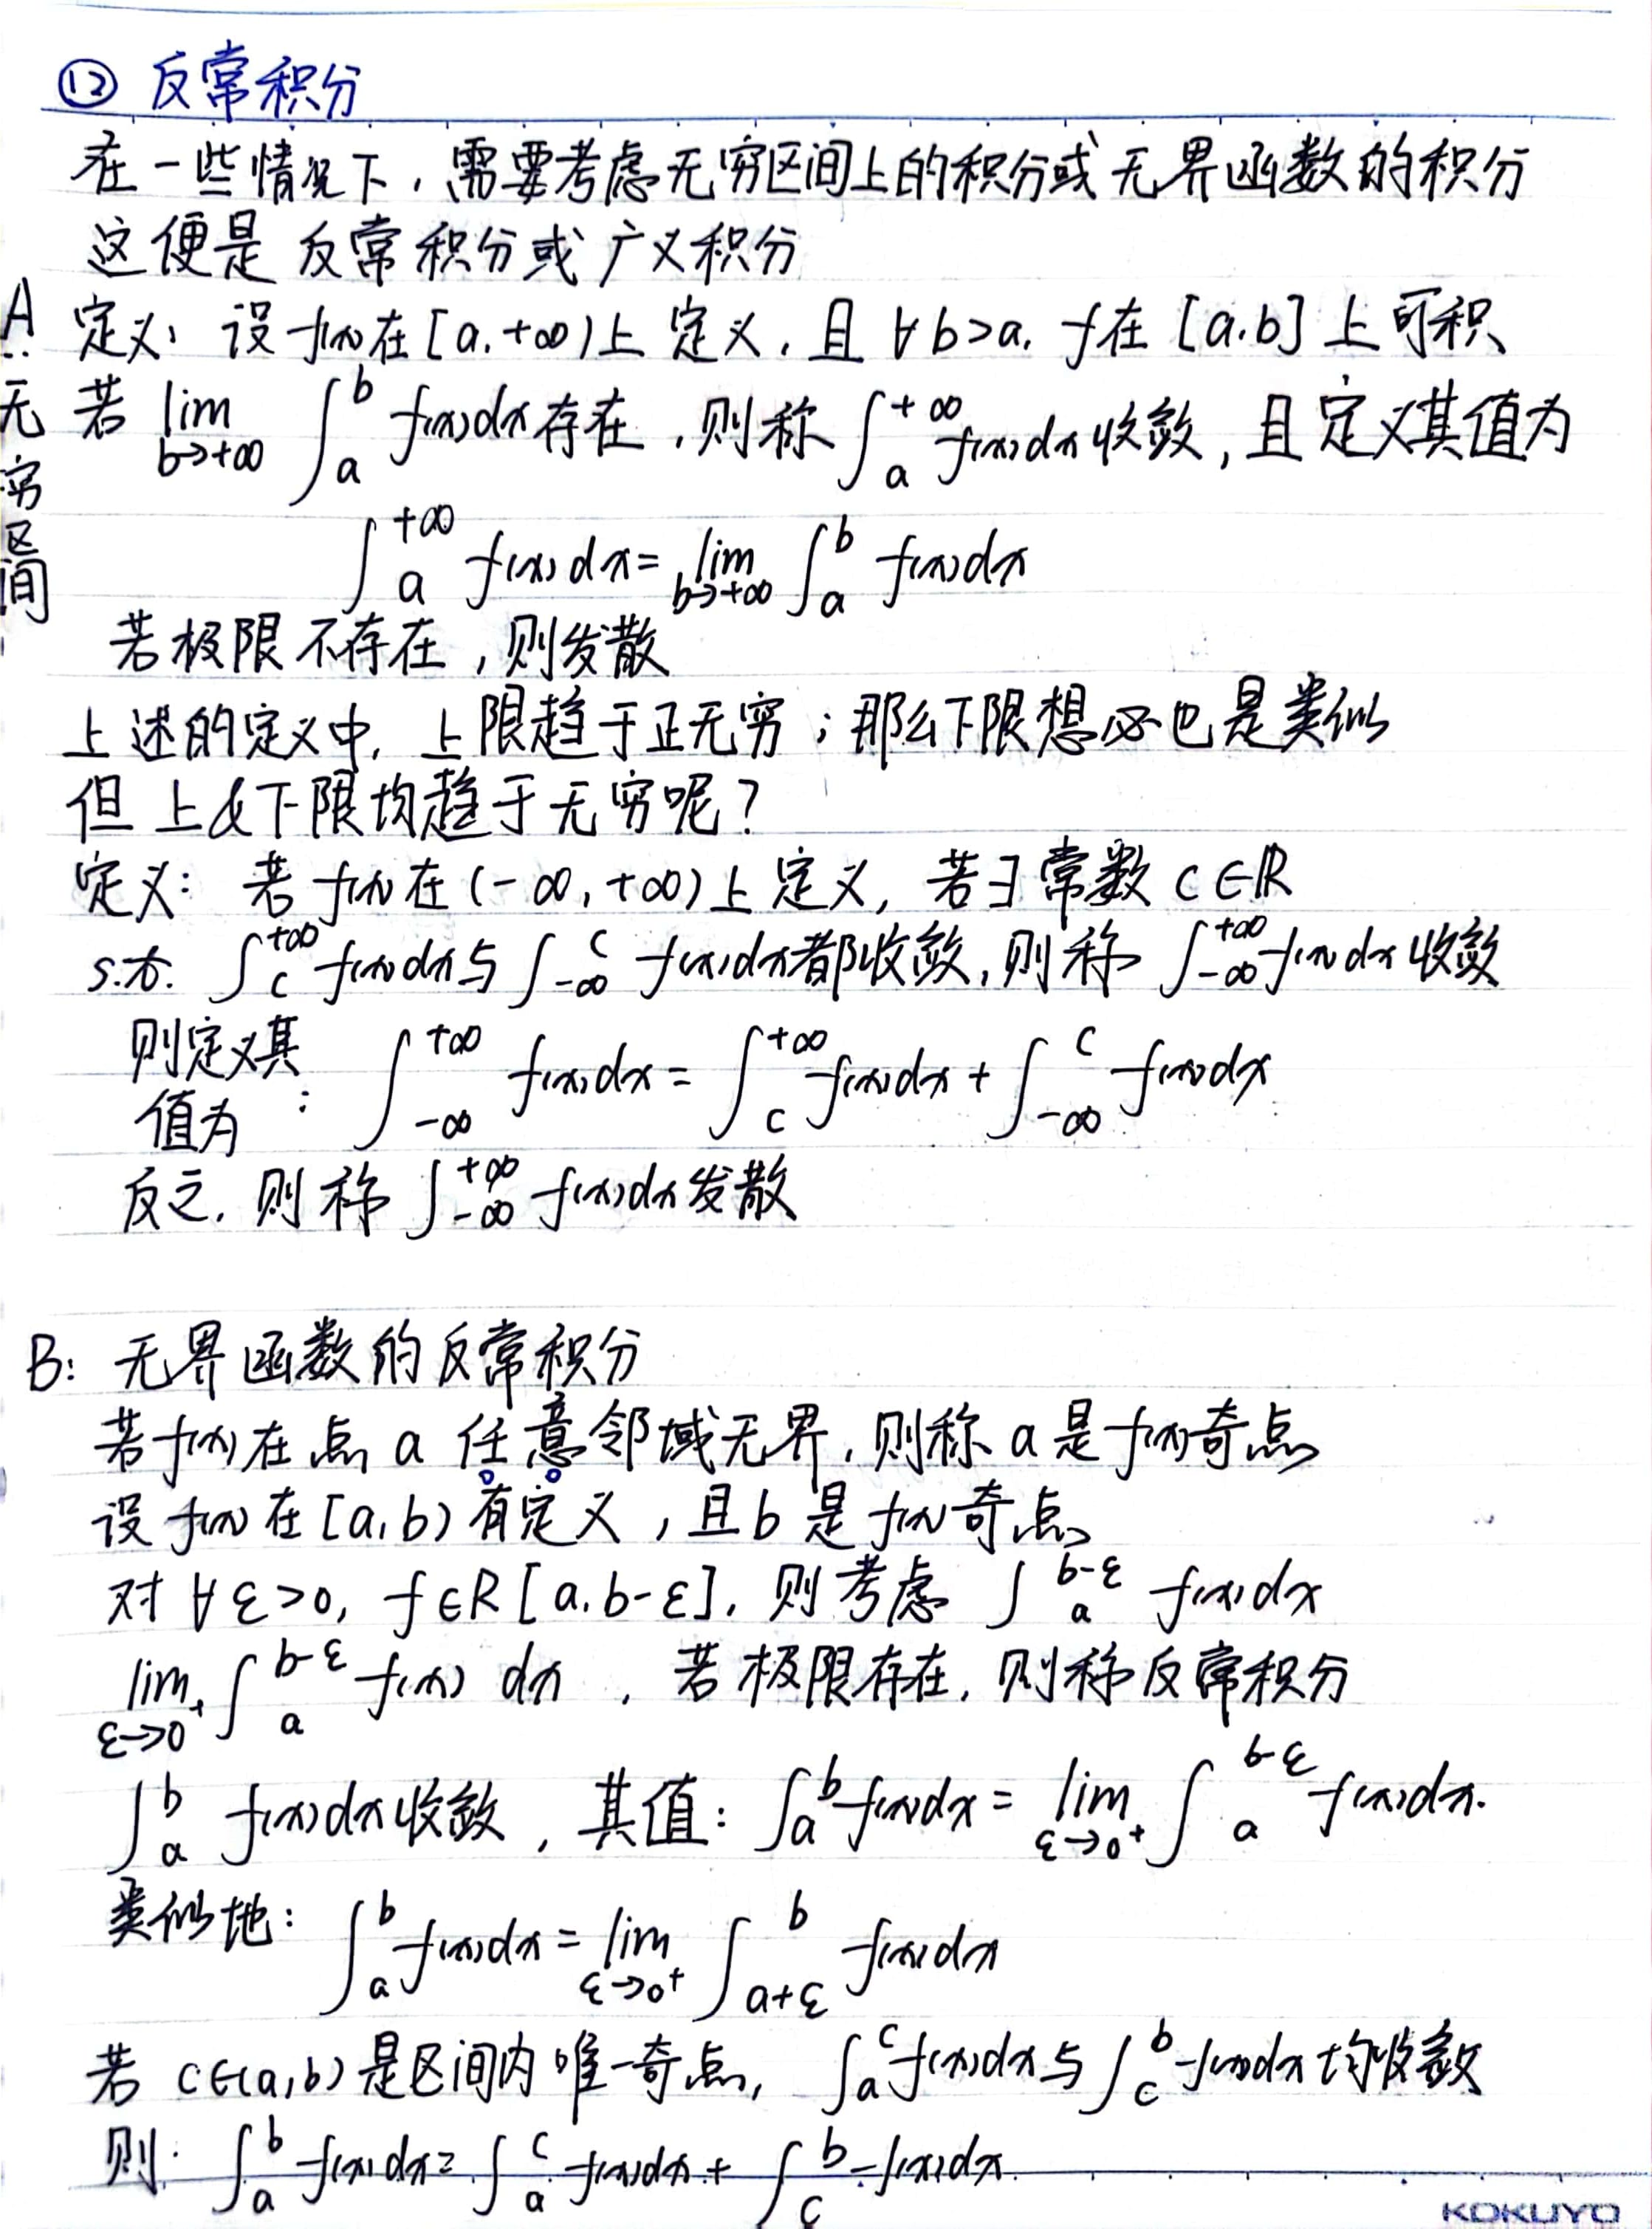 ⑫ 反常积分
在一些情况下，需要考虑无穷区间上的积分或无界函数的积分
这便是反常积分或广义积分
A: 无穷区间
定义: 设 f(x) 在 [a,+∞) 上定义，且 ∀b>a, f在 [a,b] 上可积、
若 lim_{b→+∞} ∫_a^b f(x)dx 存在，则称 ∫_a^{+∞} f(x)dx 收敛，且定义其值为
∫_a^{+∞} f(x)dx = lim_{b→+∞} ∫_a^b f(x)dx
若极限不存在，则发散
上述的定义中，上限趋于正无穷；那么下限想必也是类似
但上&下限均趋于无穷呢?
定义: 若 f(x) 在 (-∞,+∞) 上定义, 若∃常数 C∈ℝ
s.t. ∫_c^{+∞} f(x)dx 与 ∫_{-∞}^c f(x)dx 都收敛, 则称 ∫_{-∞}^{+∞} f(x)dx 收敛
则定义其值为: ∫_{-∞}^{+∞} f(x)dx = ∫_c^{+∞} f(x)dx + ∫_{-∞}^c f(x)dx
反之, 则称 ∫_{-∞}^{+∞} f(x)dx 发散
B: 无界函数的反常积分
若 f(x) 在点 a 任意邻域无界, 则称 a 是 f(x) 奇点
设 f(x) 在 [a,b) 有定义, 且 b 是 f(x) 奇点
对 ∀ε>0, f∈R[a,b-ε], 则考虑 ∫_a^{b-ε} f(x)dx
lim_{ε→0⁺} ∫_a^{b-ε} f(x)dx , 若极限存在, 则称反常积分
∫_a^b f(x)dx 收敛, 其值: ∫_a^b f(x)dx = lim_{ε→0⁺} ∫_a^{b-ε} f(x)dx.
类似地: ∫_a^b f(x)dx = lim_{ε→0⁺} ∫_{a+ε}^b f(x)dx
若 c∈(a,b) 是区间内唯一奇点, ∫_a^c f(x)dx 与 ∫_c^b f(x)dx 均收敛
则: ∫_a^b f(x)dx = ∫_a^c f(x)dx + ∫_c^b f(x)dx.
KOKUYO